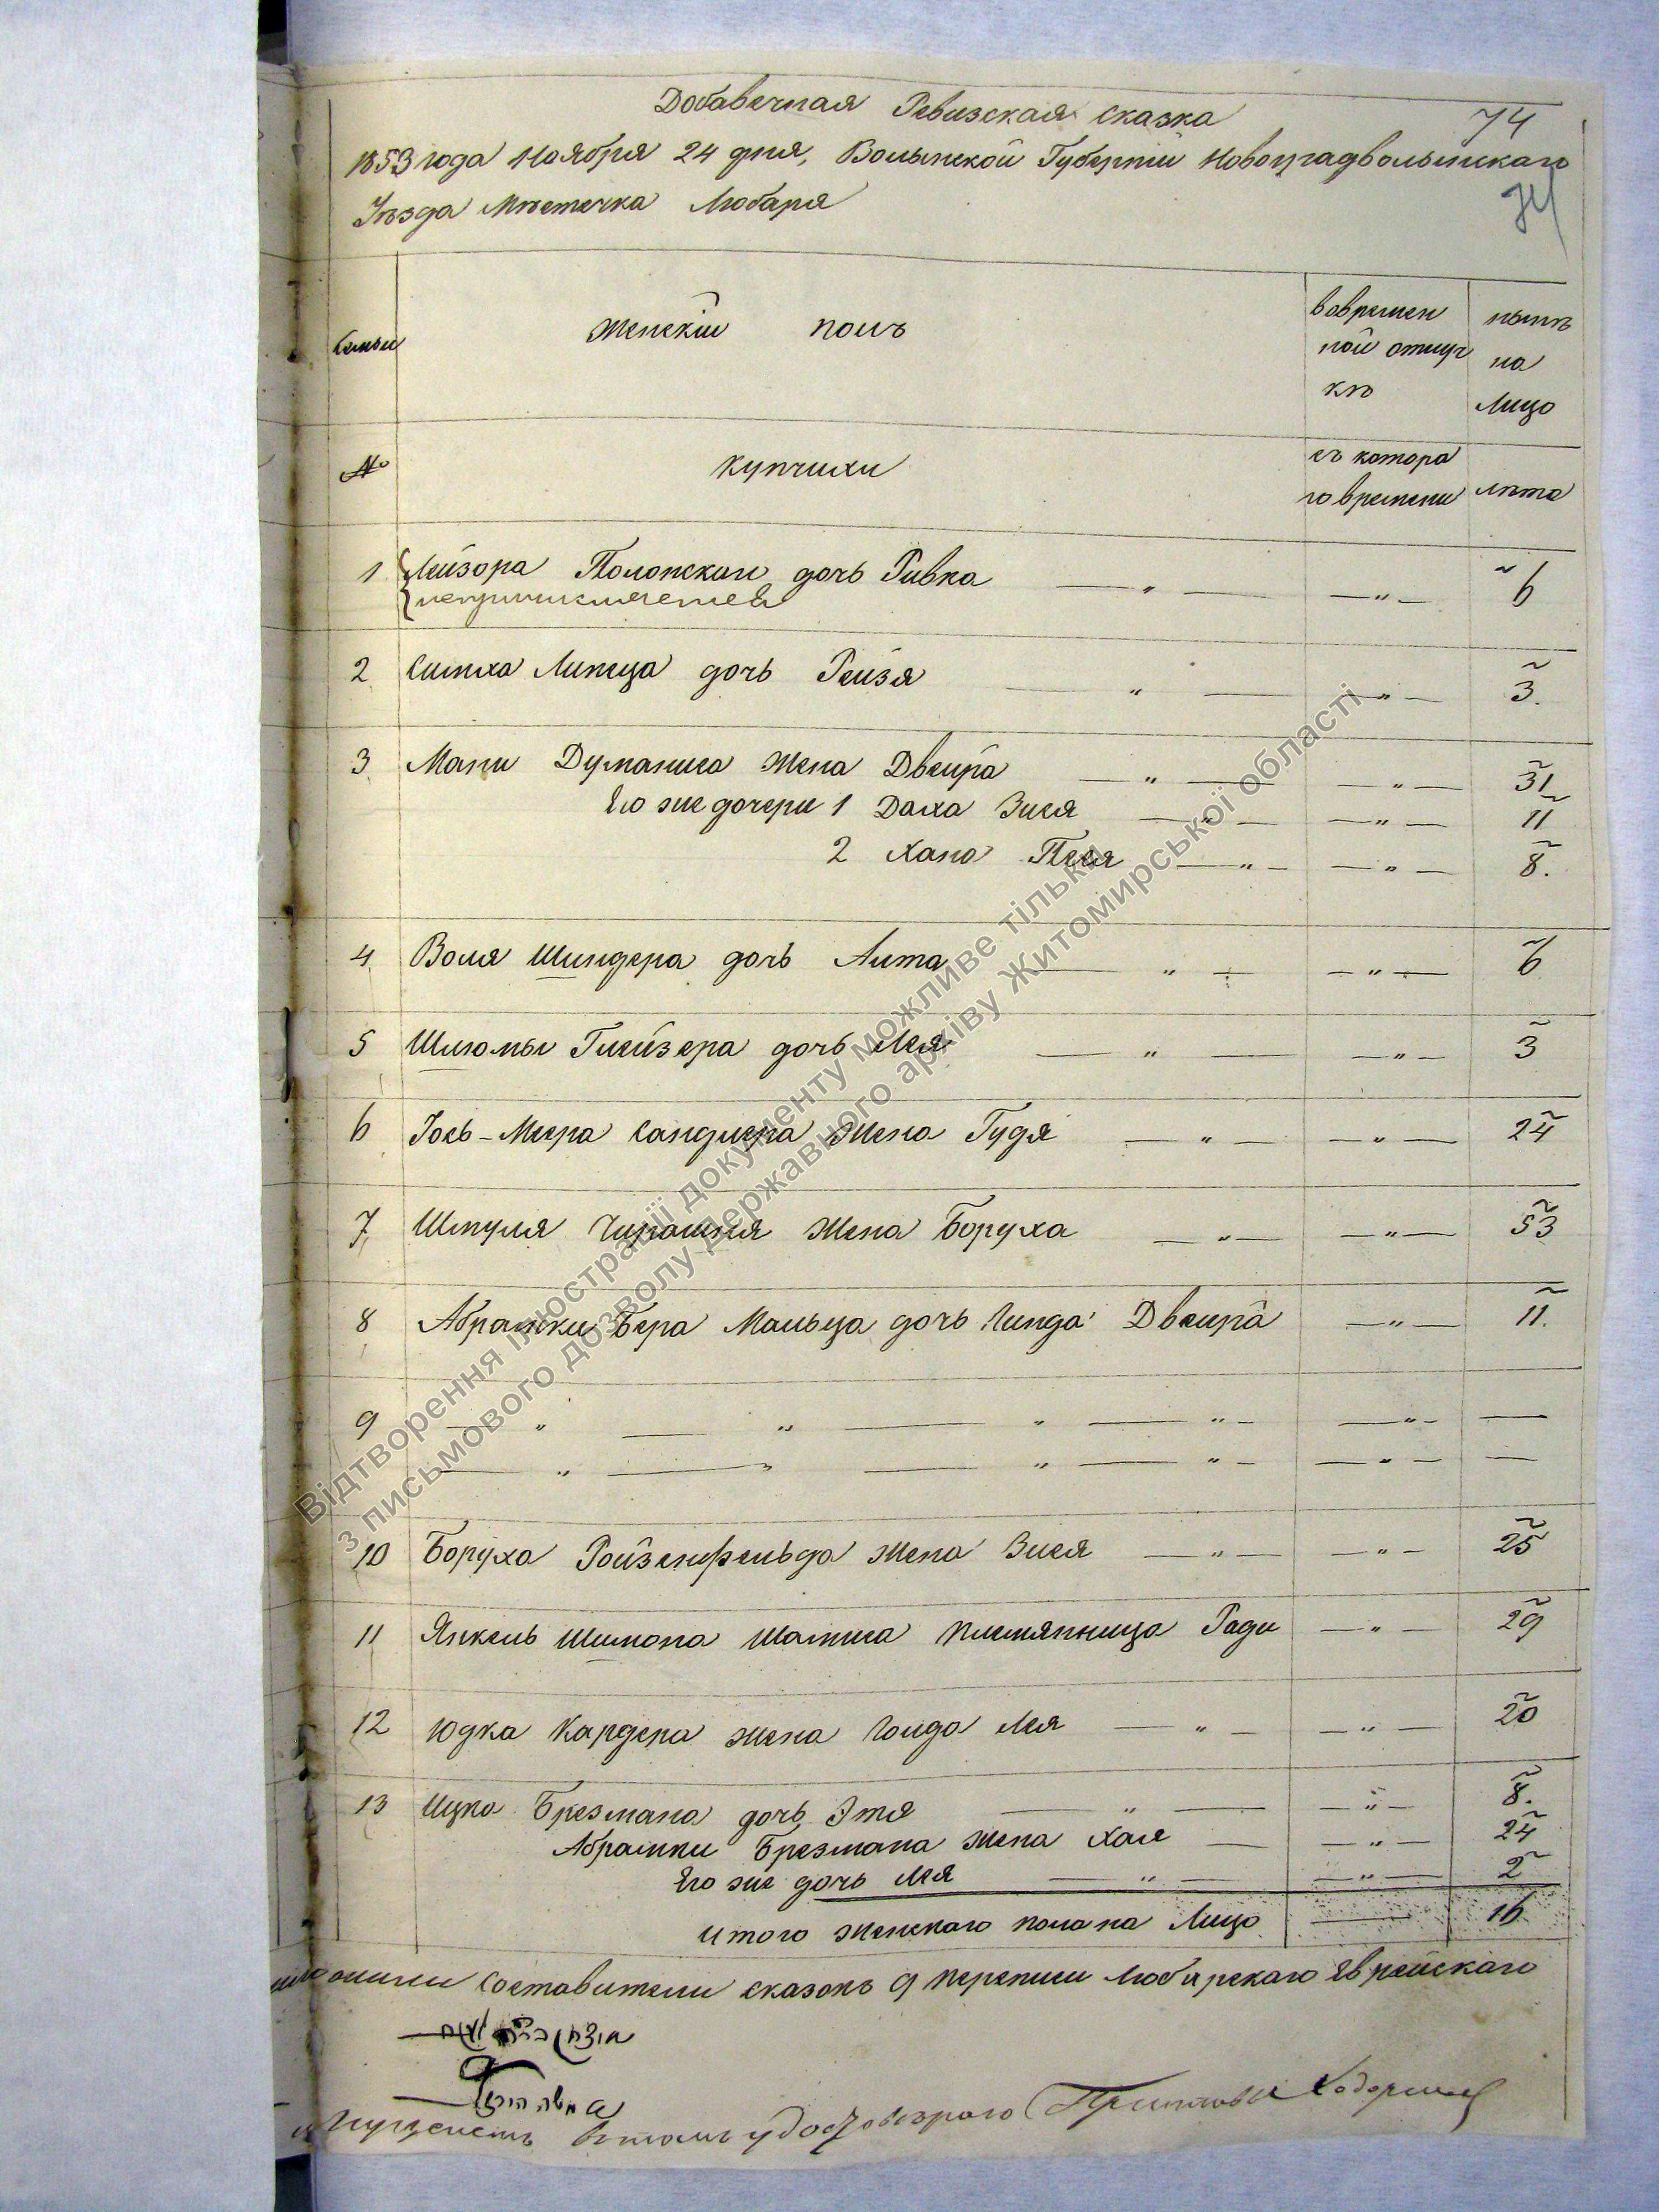 Добавочная Ревизская сказка
74
1853 года Ноября 24 дня, Волынской Губернии Новоградволынскаго
Уѣзда Мѣстечка Любаря
74
Семьи
Женскій полъ
вовремен
ной отлуч
кѣ
нынѣ
на
Лицо
№
Купчихи
съ котора
го времени
лѣта
1 Лейзора Полонскаго дочь Ривка — „ — — „ — 6
2 Симха Липеца дочь Рейзя — „ — — „ — 3.
3 Мани Думаниса жена Двейра — „ — — „ — 31
Его же дочери 1 Даха Зися — „ — — „ — 11
2 Хана Песя — „ — — „ — 8.
4 Воля Шиндера дочь Лита — „ — — „ — 6
5 Шлюмы Глейзера дочь Лея — „ — — „ — 3
6 Іось-Меера Сандлера жена Гудя — „ — — „ — 24
7 Шмуля жена Боруха — „ — — „ — 53
8 Абрамки Бера Мальца дочь Гинда Двейра — „ — 11.
9 — „ — „ — „ — „ — — „ — —
— „ — „ — „ — „ — — „ — —
10 Боруха Ройзенфельда жена Зися — „ — — „ — 25
11 Янкель Шимона Шамиса племянница Гади — „ — 29
12 Юдка Кардера жена Голда Лея — „ — — „ — 20
13 Ицка Брезмана дочь Этя — „ — — „ — 8.
Абрамки Брезмана жена Хая — — „ — 24
Его же дочь Лея — „ — — „ — 2
Итого женскаго пола на Лицо — 16
составители сказокъ 9 переписи Любарскаго Еврейскаго
Відтворення ілюстрації документу можливе тільки
з письмового дозволу Державного архіву Житомирської області